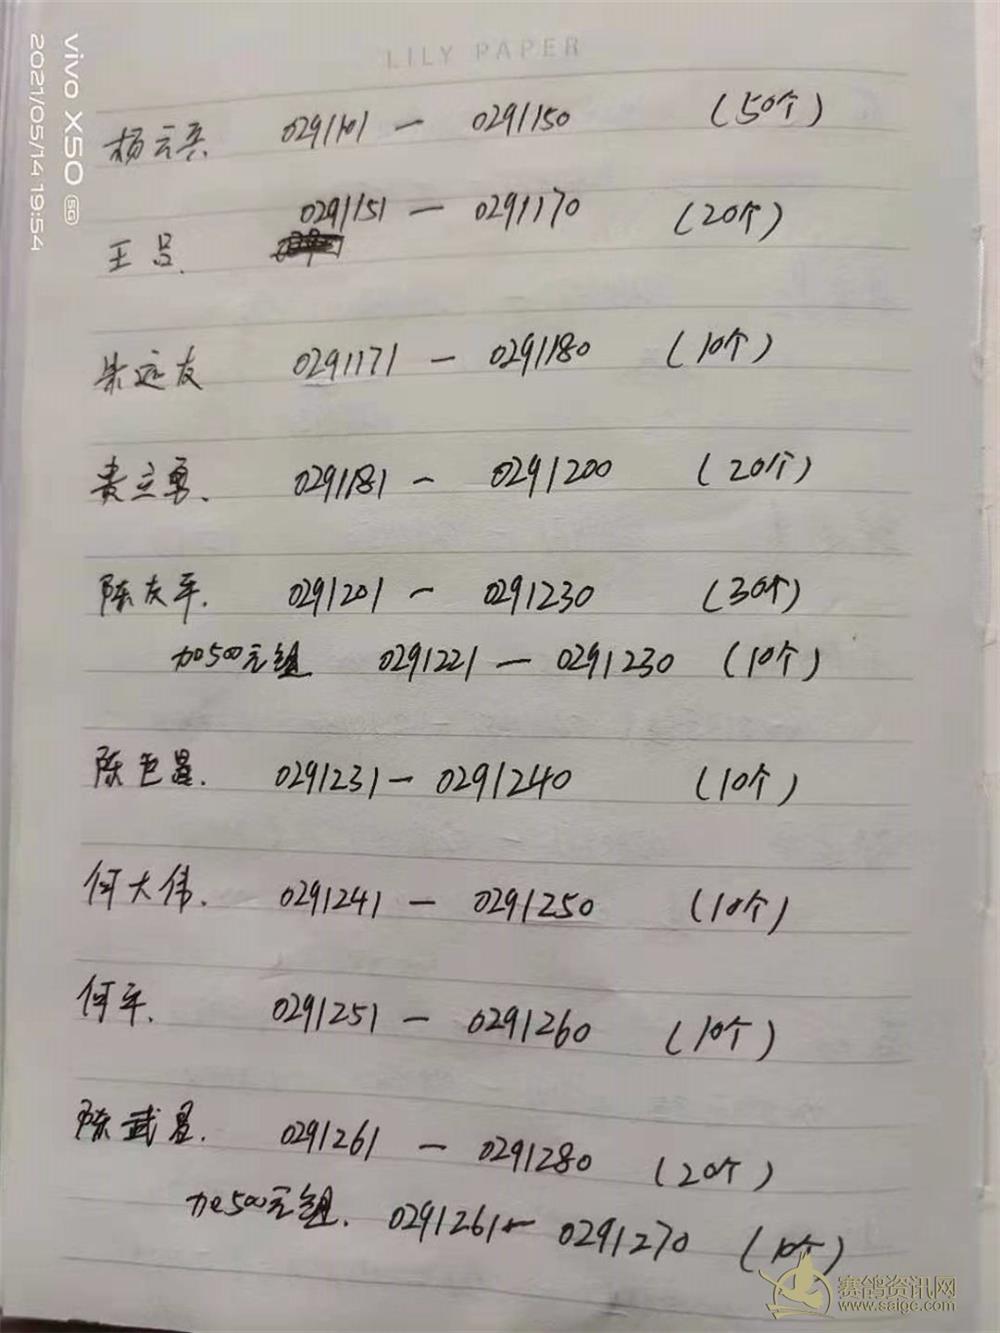 LILY PAPER
vivo X50 5G
2021/05/14 19:54
杨云 0291101 — 0291150 (50个)
王吕. 0291151 — 0291170 (20个)
朱远友 0291171 — 0291180 (10个)
贵立勇. 0291181 — 0291200 (20个)
陈友平. 0291201 — 0291230 (30个)
加500元组 0291221 — 0291230 (10个)
陈 0291231 — 0291240 (10个)
何大伟. 0291241 — 0291250 (10个)
何平. 0291251 — 0291260 (10个)
陈武星. 0291261 — 0291280 (20个)
加500元组. 0291261 — 0291270 (10个)
赛鸽资讯网
www.saige.com